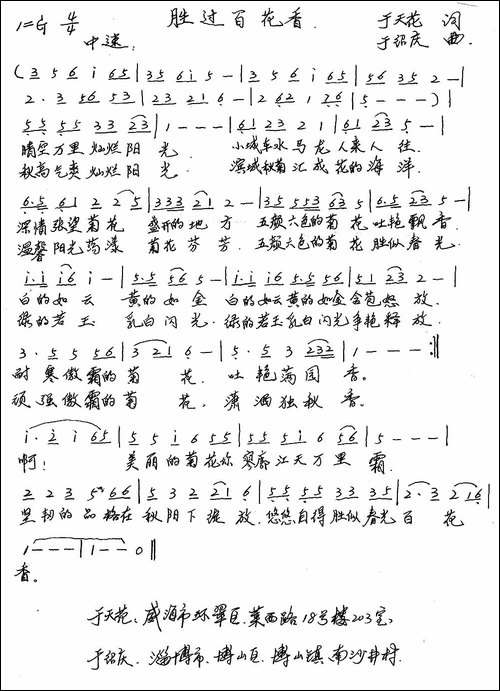 1=G 4/4 胜过百花香. 于天花 词
中速. 于绍庆 曲.
(3 5 6 i 65|35 6i 5 -|3 5 6 i 65|56 35 2 -|
2·3 56 53|23 21 6 -|2 62 1 76|5 - - -)|
55 55 33 23|1 - - -|61 23 2 1|61 23 5 -|
晴空万里灿烂阳 光. 小城车水马龙人来人 往.
秋高气爽灿烂阳 光. 滨城秋菊汇成花的海 洋.
6·5 61 2 25|333 21 2 -|35 553 63 5|6·5 23 5 -|
深情张望菊花 盛开的地 方 五颜六色的菊花吐艳飘 香.
温馨阳光荡漾 菊花芬 芳. 五颜六色的菊花胜似春 光.
i·i i6 i -|5·5 56 5 -|i·i i6 5·5 56|51 23 2 -|
白的如 云 黄的如 金 白的如云黄的如金含苞怒 放.
绿的若 玉 乳白闪 光. 绿的若玉乳白闪光争艳释 放.
3·5 5 56|3 21 6 -|5·5 3 232|1 - - -:‖
耐寒傲霜的菊 花. 吐艳满园 香。
顽强傲霜的菊 花, 潇洒独秋 香。
i·2 i 65|5 5 i 6 55|55 51 6 56|5 - - -|
啊! 美丽的菊花你寥廓江天万里 霜.
2 2 3 5 66|5 3 2 21 6|55 55 33 35|2·3 2 16|
坚韧的品格在秋阳下绽 放.悠悠自得胜似春光百 花
1 - - -|1 - - 0‖
香。
于天花:威海市环翠区.莱西路18号楼203室.
于绍庆.淄博市.博山区.博山镇.南沙井村.